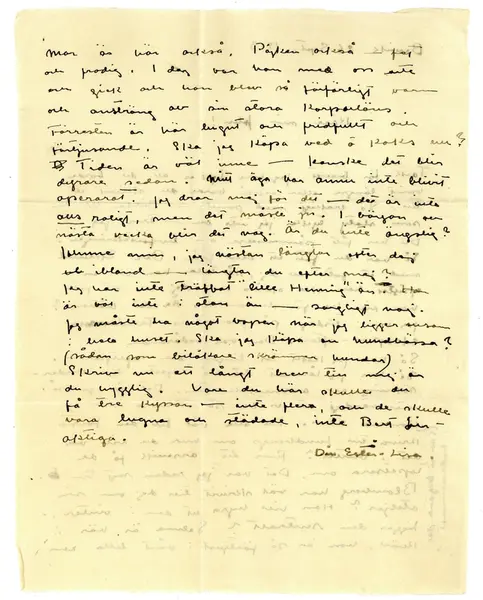 Mor är här också. Pågken också — fet
och frodig. I dag var han med oss ute
och gick och han blev så förfärligt varm
och ansträng av sin stora korpulens.
Förresten är här lugnt och fridfullt och
förtjusande. Ska jag köpa ved o koks nu?
Tiden är väl inne — kanske det blir
dyrare sedan. Mitt öga har ännu inte blivit
opererat. Jag drar mig för det — det är inte
alls roligt, men det måste ju. I början av
nästa vecka blir det nog. Är du inte ängslig?
jag nästan längtar efter dej
ibland — längtar du efter mej?
Jag har inte träffat "lille Henning" än. Han
är väl inte i stan än — sorgligt nog.
Jag måste ha något vapen, när jag ligger ensam
i hela huset. Ska jag köpa en hundbössa?
(sådan som bilåkare skrämmer hundar)
Skriv nu ett långt brev till mig är
du hygglig. Vore du här skulle du
få tre kyssar — inte flera, och de skulle
vara lugna och städade, inte Bert
aktiga.
Din Ester-Lisa.